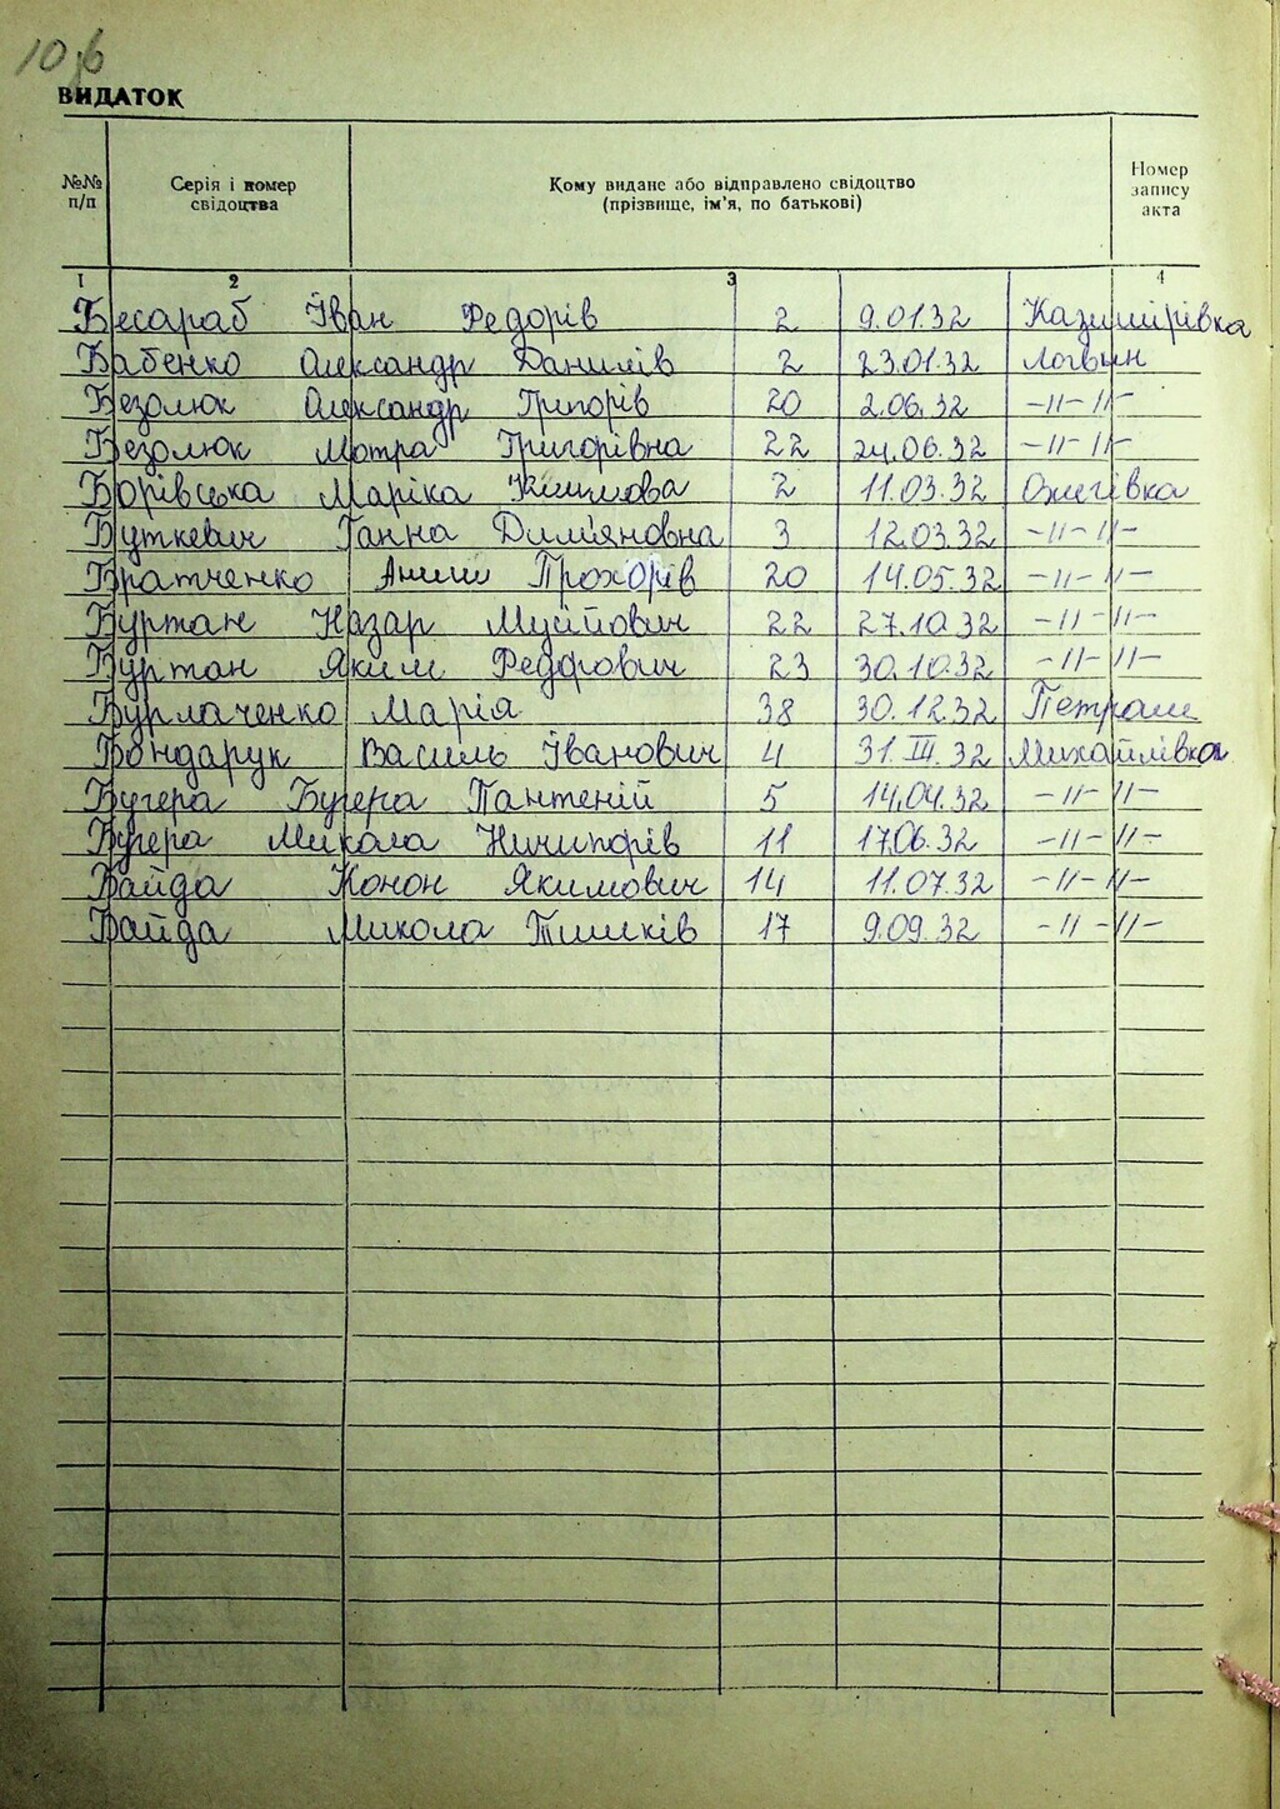 10
ВИДАТОК
№№ п/п
Серія і номер свідоцтва
Кому видане або відправлено свідоцтво (прізвище, ім'я, по батькові)
Номер запису акта
1 2 3 4
Бесараб Їван Федорів 2 9.01.32 Казимирівка
Бабенко Олександр Данилів 2 23.01.32 Логвин
Безолюк Олександр Григорів 20 2.06.32 -//-//-
Безолюк Мотра Григорівна 22 24.06.32 -//-//-
Борівська Маріка 2 11.03.32 Ожегівка
Буткевич Ганна Дим'яновна 3 12.03.32 -//-//-
Братченко Прохорів 20 14.05.32 -//-//-
Буртан Назар Мусійович 22 27.10.32 -//-//-
Буртан Яким Федорович 23 30.10.32 -//-//-
Бурлаченко Марія 38 30.12.32 Петраши
Бондарук Василь Їванович 4 31.III.32 Михайлівка
Бугера Бугера Пантеній 5 14.04.32 -//-//-
Бугера Микола Ничипорів 11 17.06.32 -//-//-
Байда Конон Якимович 14 11.07.32 -//-//-
Байда Микола Тишків 17 9.09.32 -//-//-